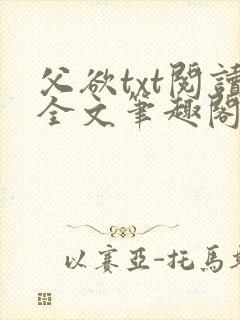 父欲txt閱讀
全文筆趣閣
以賽亞-托馬斯